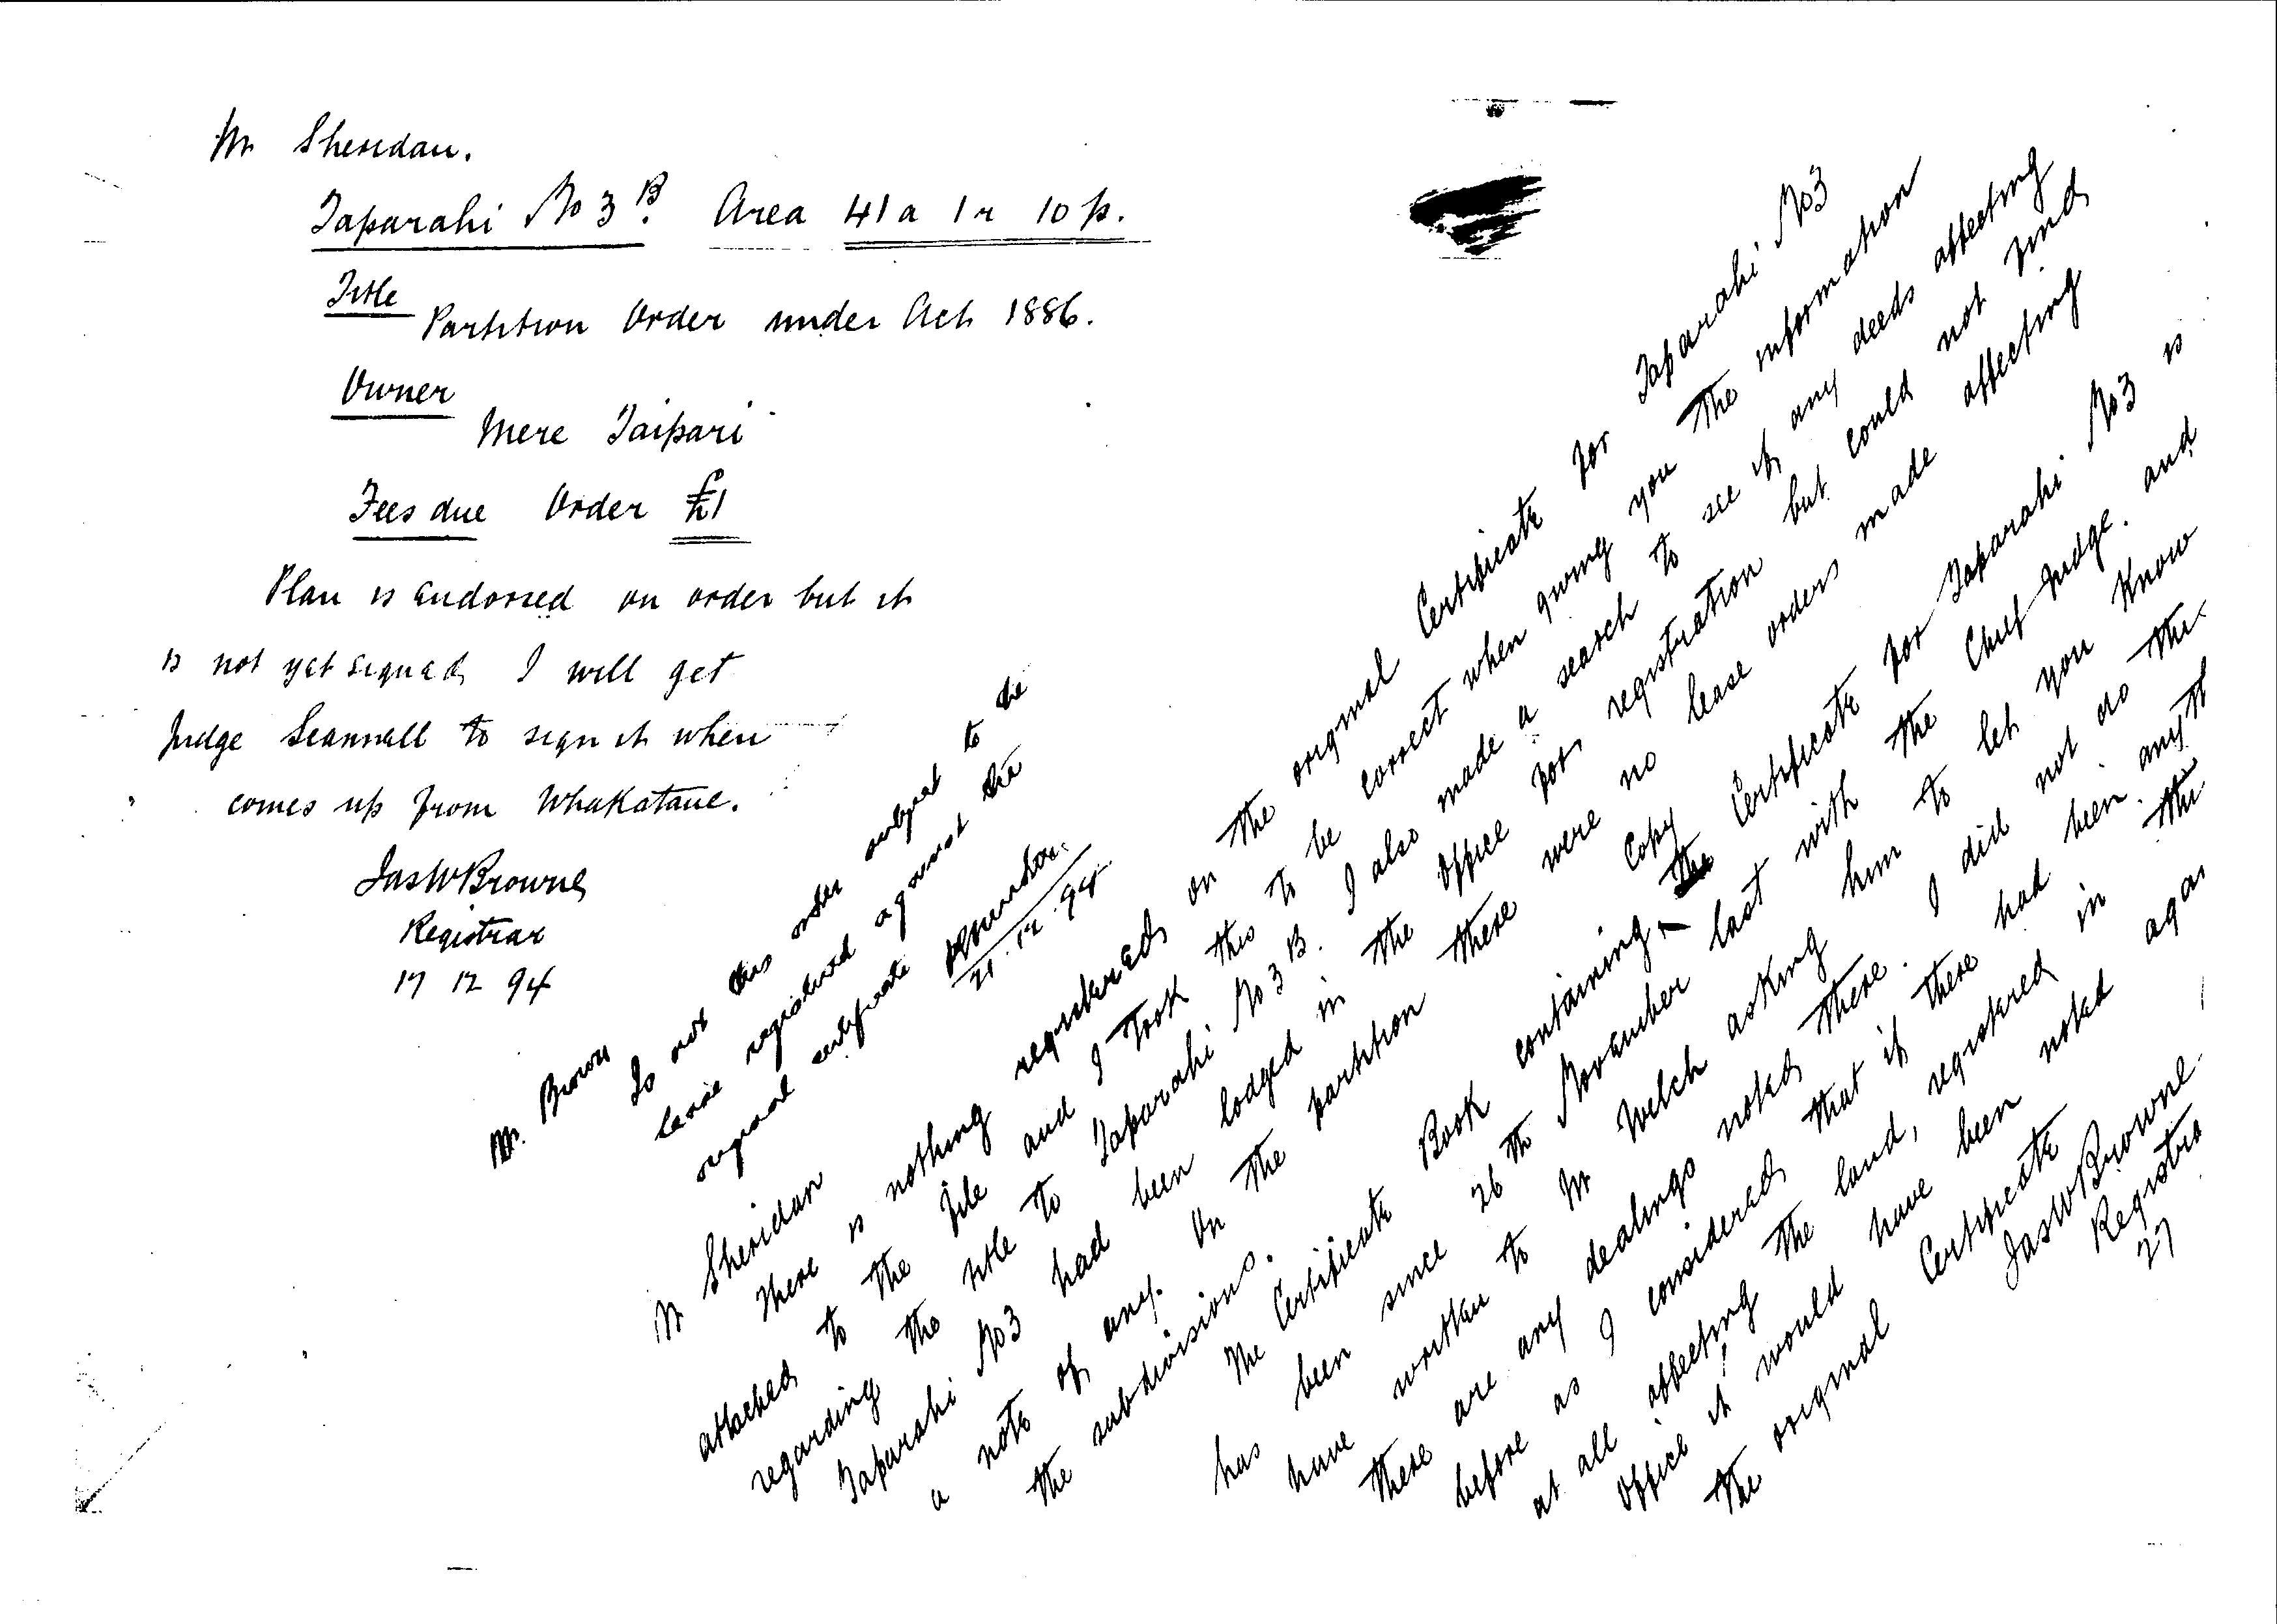 Mr Sheridan.
Taparahi No 3 B. Area 41a 1r 10p.
Title
Partition Order under Act 1886.
Owner
Mere Taipari
Fees due Order £1
Plan is endorsed on order but it
is not yet signed I will get
Judge Scannell to sign it when
comes up from Whakatane.
JasWBrowne
Registrar
17 12 94
Mr. Brown
Is not this order subject to the
lease registered against the
original certificate
21.12.94
Mr Sheridan
There is nothing registered on the original Certificate for Taparahi No3
attached to the file and I took this to be correct when giving you the information
regarding the title to Taparahi No 3 B. I also made a search to see if any deeds affecting
Taparahi No3 had been lodged in the Office for registration but could not find
a note of any. On the partition there were no lease orders made affecting
the subdivisions.
The Certificate Book containing the Copy Certificate for Taparahi No3 is
has been since 26th November last with the Chief Judge. and
have written to Mr Welch asking him to let you know
there are any dealings noted there. I did not do this
before as I considered that if there had been anyth
at all affecting the land, registered in this
Office it would have been noted agai
the original Certificate
JasWBrowne
Registra
27